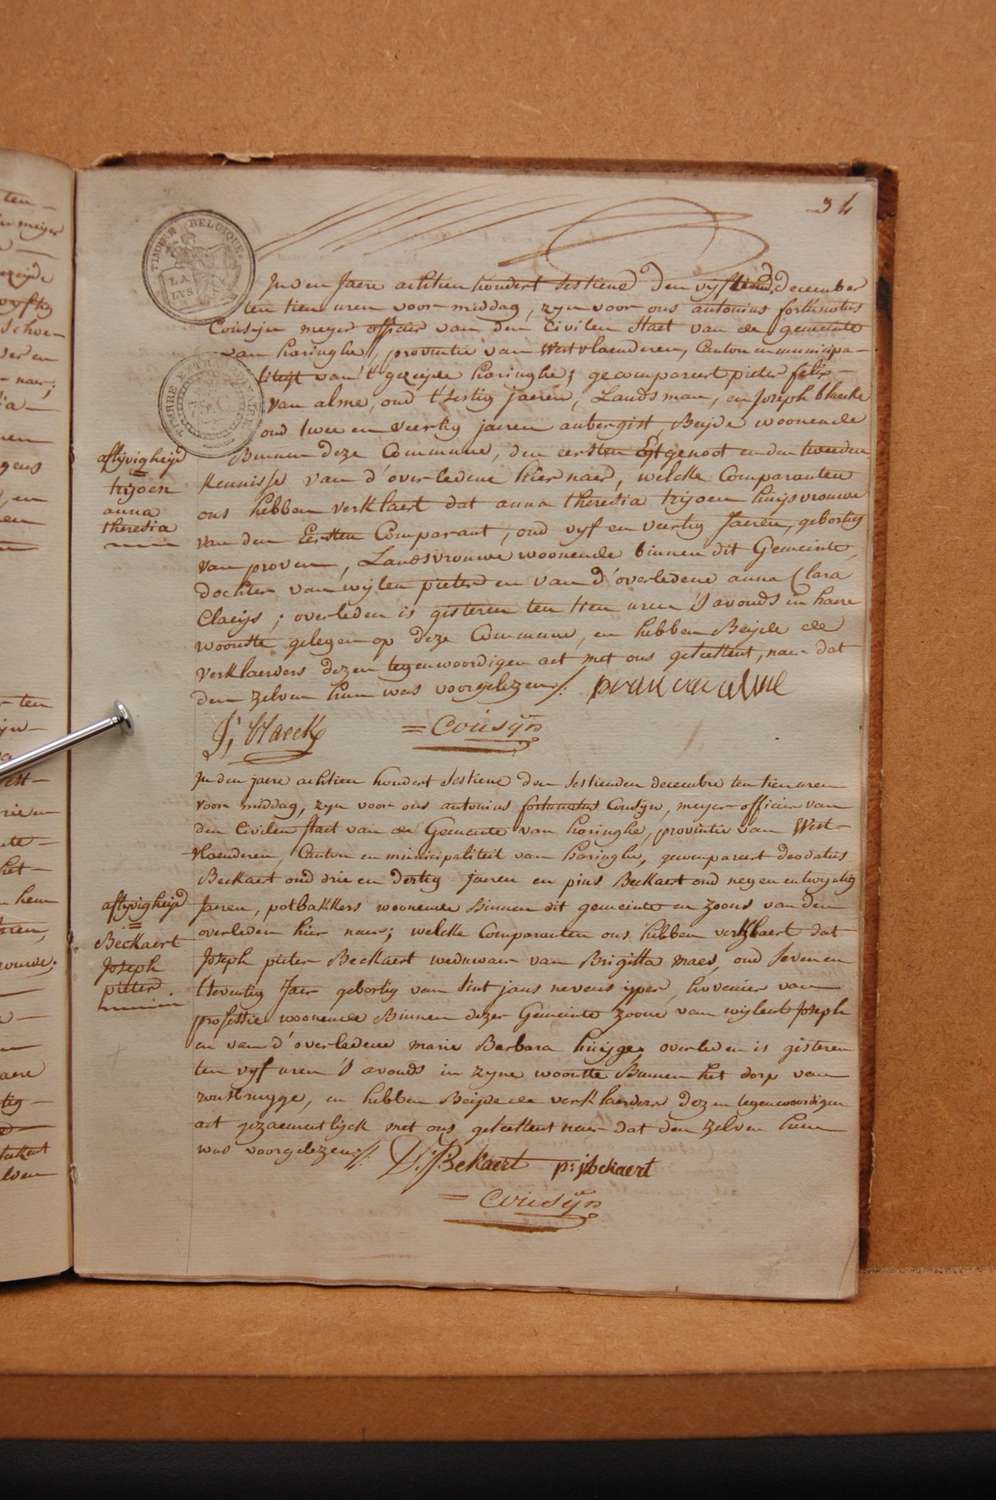 34
TIMBRE BELGIQUE
LA LYS
In den Jaere achtien hondert sestiene den vyftiend, december
ten tien uren voor middag, zyn voor ons antonius fortunatus
Cousijn meyer officier van den Civilen staet van de gemeente
van haringhe, provintie van Westvlaenderen, Canton en municipa-
liteyt van 't gezeyde haringhe; gecompareert pieter felix
van alme, oud t'sestig jaeren, Landsman, en Joseph blaeke
oud twee en veertig jaeren aubergist, Beyde woonende
Binnen deze Commune, den eersten Egtgenoot en den tweeden
kennisse van d'overledene hier naer, welcke Comparanten
ons hebben verklaert dat anna theresia trijoen huysvrouwe
van den Eersten Comparant, oud vyf en veertig Jaeren, gebortig
van proven, Landsvrouwe woonende binnen dit Gemeinte,
dochter van wijlen pieter en van d'overledene anna Clara
Claeijs; overleden is gisteren ten tien uren 's avonds in haere
woonste gelegen op deze Commune, en hebben Beijde de
verklaerders dezen tegenwoordigen act met ons geteekent, naer dat
den zelven hun was voorgelezen //.
aflijvigheijd
=
trijoen
anna
theresia
J, Blaeck
= Cousijn
In den jaere achtien hondert sestiene den sestienden decembre ten tien uren
voor middag, zyn voor ons antonius fortunatus Cousijn, meijer officier van
den Civilen staet van de Gemeente van haringhe, provintie van West-
vlaenderen, Canton en municipaliteit van haringhe, gecompareert deodatus
Beckaert oud drie en dertig jaeren en pius Beckaert oud negen en twyntig
Jaeren, potbakkers woonende Binnen dit gemeente en zoons van den
overleden hier naer; welcke Comparanten ons hebben verklaert dat
Joseph pieter Beckaert weduwaer van Brigitta maes, oud seven en
t'seventig Jaer gebortig van Sint jans nevens yper, hovenier van
professie woonende Binnen dezer Gemeinte zoone van wijlent Joseph
en van d'overledene marie Barbara huijge, overleden is gisteren
ten vijf uren 's avonds in zyne woonste Binnen het dorp van
rousbrugge, en hebben Beijde de verklaerders dezen tegenwoordigen
act gezaementlijck met ons geteekent naer dat den zelven hun
was voorgelezen //.
aflijvigheijd
=
Beckaert
Joseph
pieter.
D. Bekaert p: j: bekaert
= Cousijn